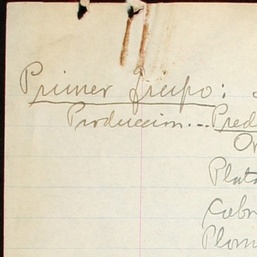 Primer Grupo:
Produccion...Pred
Or
Plata
Cobr
Plom